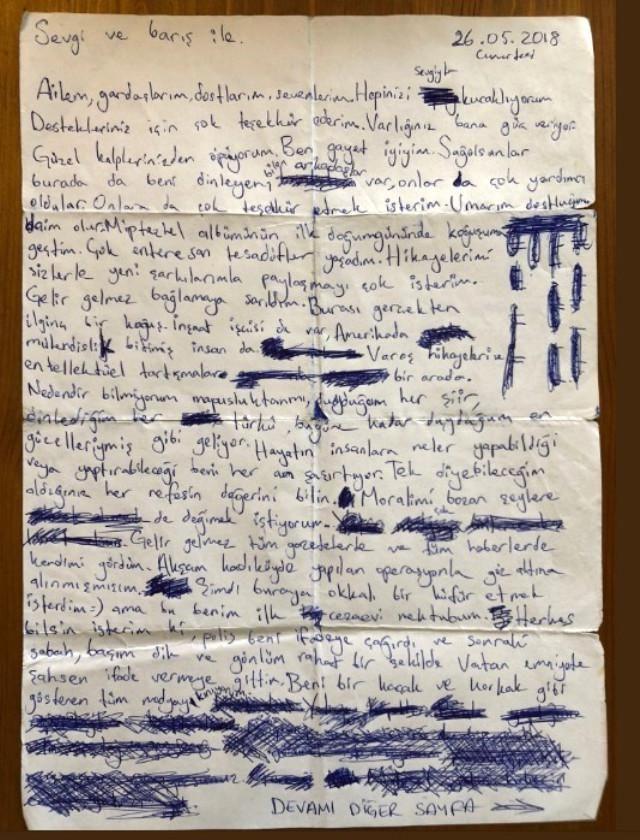 Sevgi ve barış ile.
26.05.2018
Cumartesi
Ailem, gardaşlarım, dostlarım, sevenlerim. Hepinizi sevgiyle kucaklıyorum
Destekleriniz için çok teşekkür ederim. Varlığınız bana güç veriyor.
Güzel kalplerinizden öpüyorum. Ben gayet iyiyim. Sağolsunlar
burada da beni dinleyen, bilen arkadaşlar var, onlar da çok yardımcı
oldular. Onlara da çok teşekkür etmek isterim. Umarım dostluğumuz
daim olur. Müptezhel albümünün ilk doğumgününde koğuşuma
geçtim. Çok enteresan tesadüfler yaşadım. Hikayelerimi
sizlerle yeni şarkılarımla paylaşmayı çok isterim.
Gelir gelmez bağlamaya sarıldım. Burası gerçekten
ilginç bir koğuş. İnşaat işçisi de var, Amerikada
mühendislik bitirmiş insan da. Varoş hikayeleri
entellektüel tartışmalar bir arada.
Nedendir bilmiyorum mapusluktanmı, duyduğum her şiir,
dinlediğim her türkü, bugüne kadar duyduğum en
güzelleriymiş gibi geliyor. Hayatın insanlara neler yapabildiği
veya yaptırabileceği beni her an şaşırtıyor. Tek diyebileceğim
aldığınız her nefesin değerini bilin. Moralimi bozan şeylere
de değinmek istiyorum.
Gelir gelmez tüm gazetelerde ve tüm haberlerde
kendimi gördüm. Akşam kadıköyde yapılan operasyonla göz altına
alınmışmışım. Şimdi buraya okkalı bir küfür etmek
isterdim =) ama bu benim ilk cezaevi mektubum. Herkes
bilsin isterim ki, polis beni ifadeye çağırdı ve sonraki
sabah, başım dik ve gönlüm rahat bir şekilde Vatan emniyete
şahsen ifade vermeye gittim. Beni bir kaçak ve korkak gibi
gösteren tüm medyayı kınıyorum.
DEVAMI DİĞER SAYFA